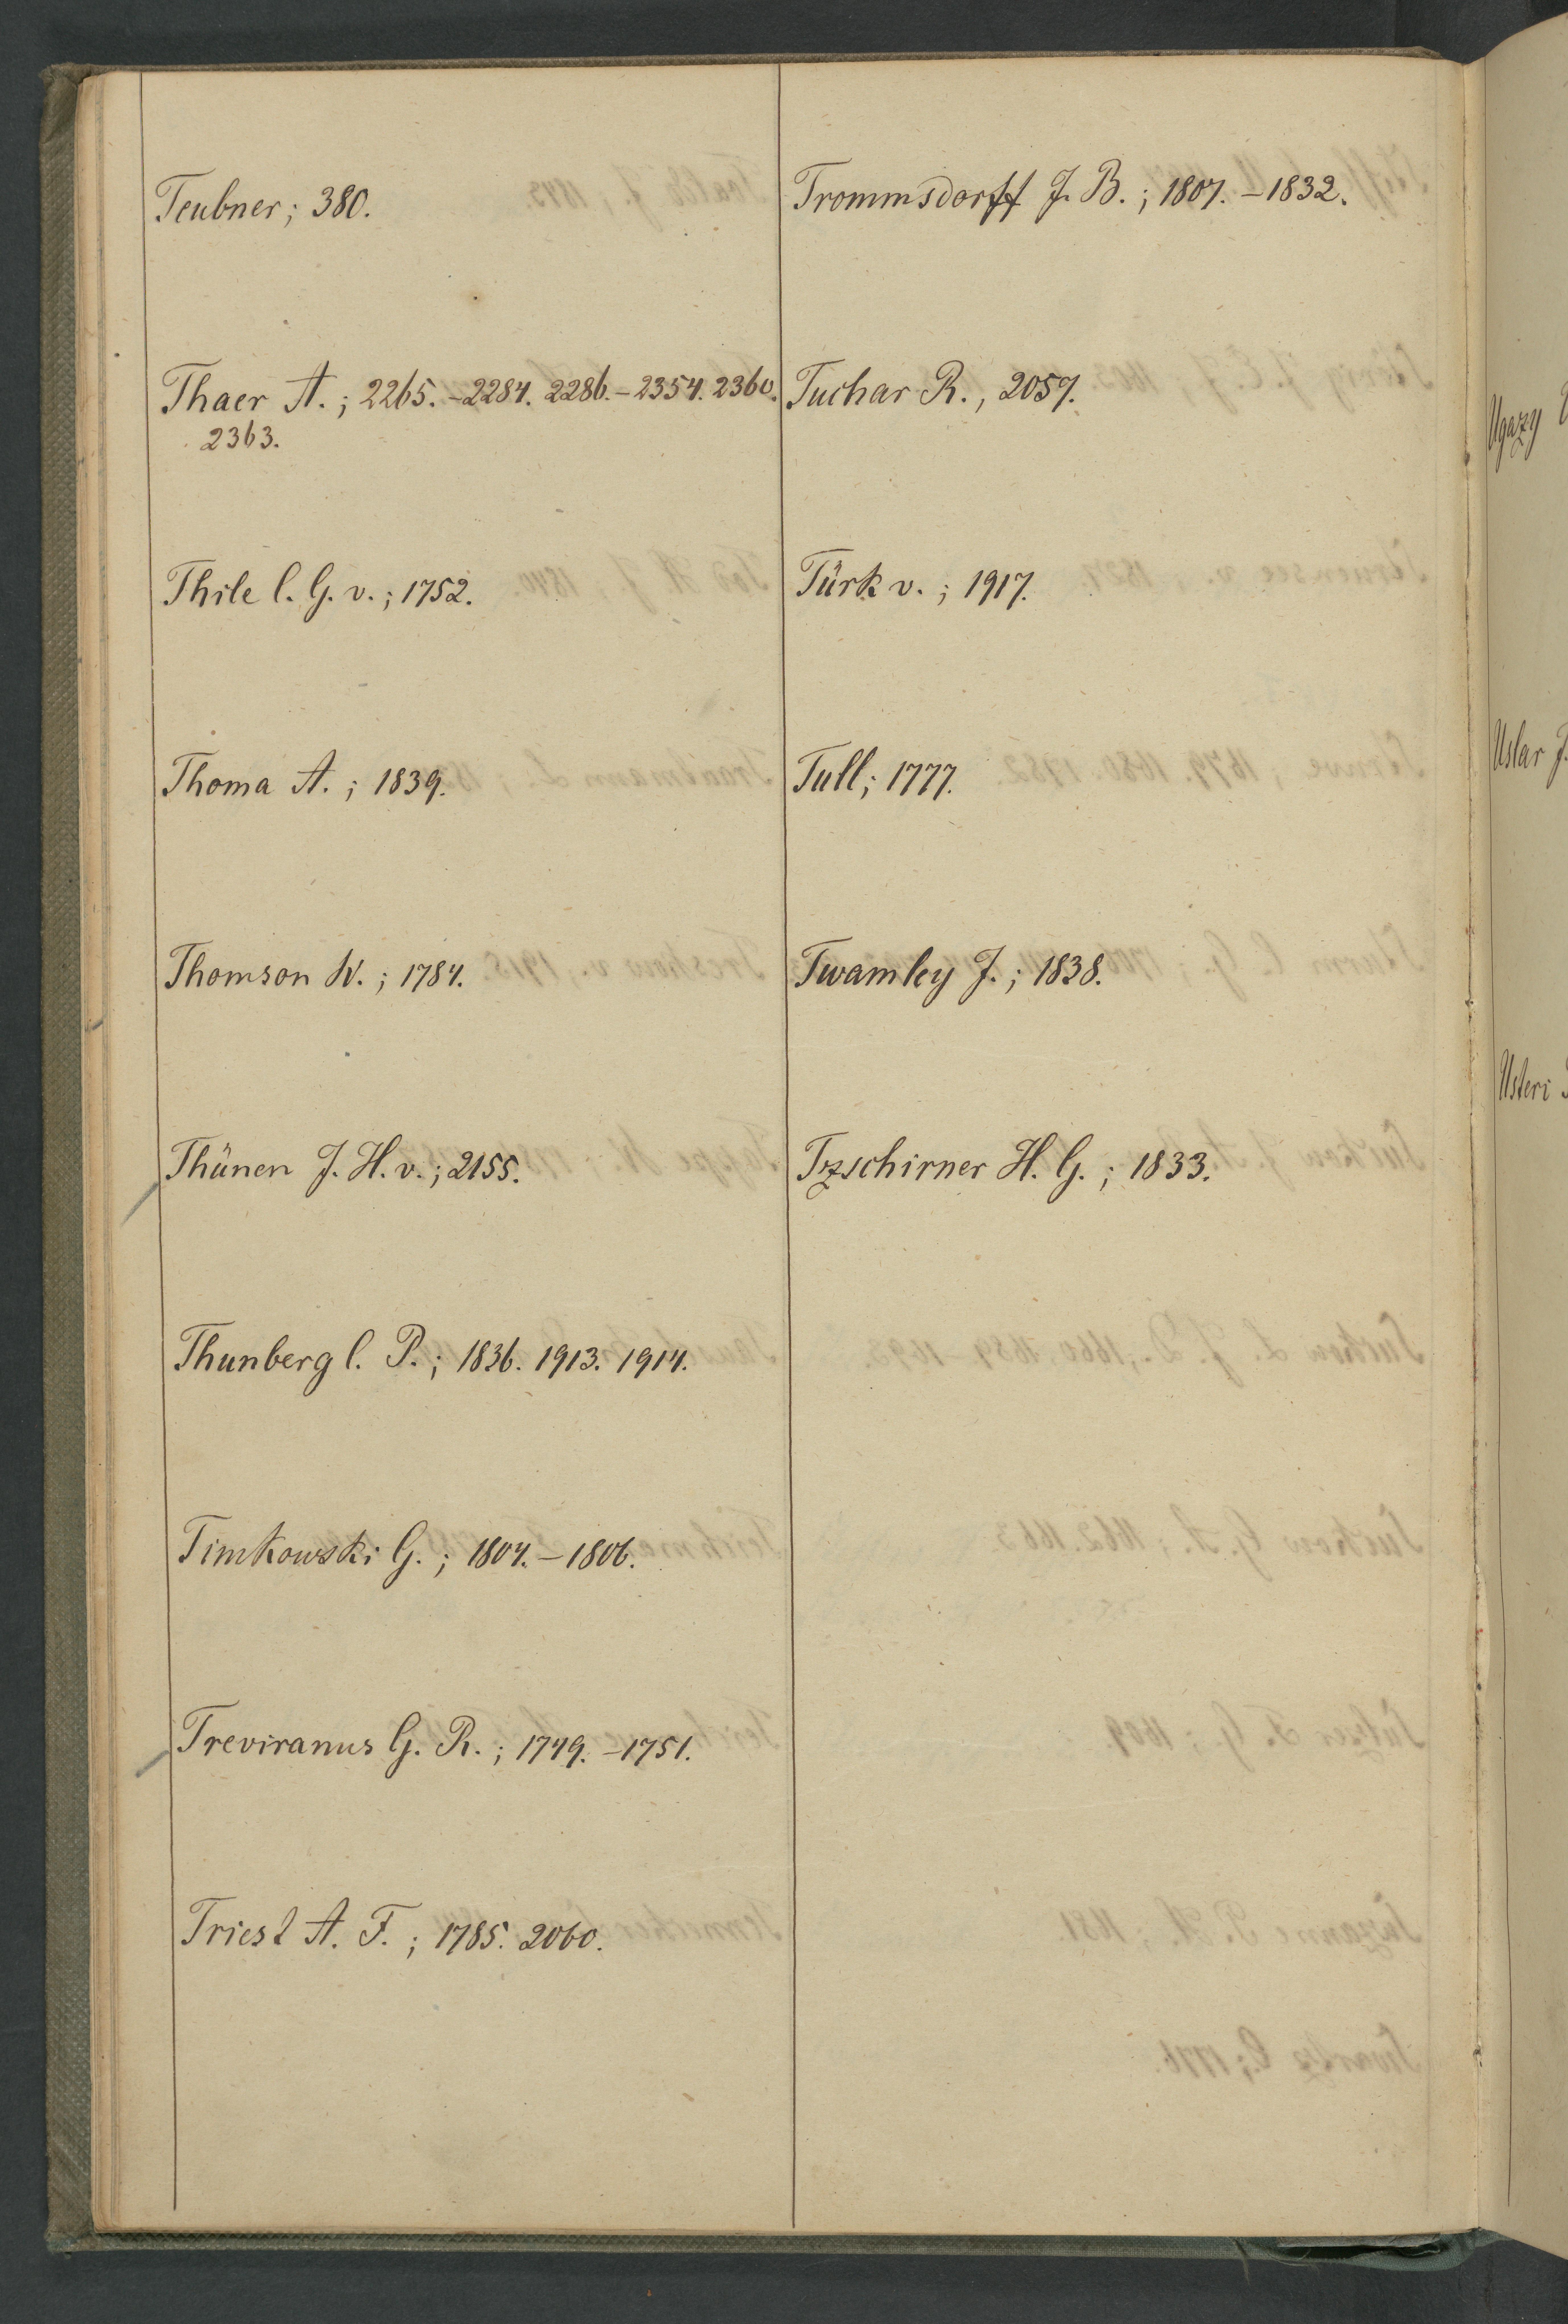 Teubner; 380.
Thaer A.; 2265.-2284. 2286.-2354. 2360.
2363.
Thile C. G. v.; 1752.
Thoma A.; 1839.
Thomson W.; 1784.
Thünen J. H. v.; 2155.
Thunberg C. P.; 1836. 1913. 1914.
Timkowski G.; 1804.-1806.
Treviranus G. R.; 1749.-1751.
Triest A. F.; 1785. 2060.
Trommsdorff J. B.; 1807.-1832.
Tuchar R., 2057.
Türk v.; 1917.
Tull; 1777.
Twamley J.; 1838.
Tzschirner H. G.; 1833.
Ugazy
Uslar J.
Usteri